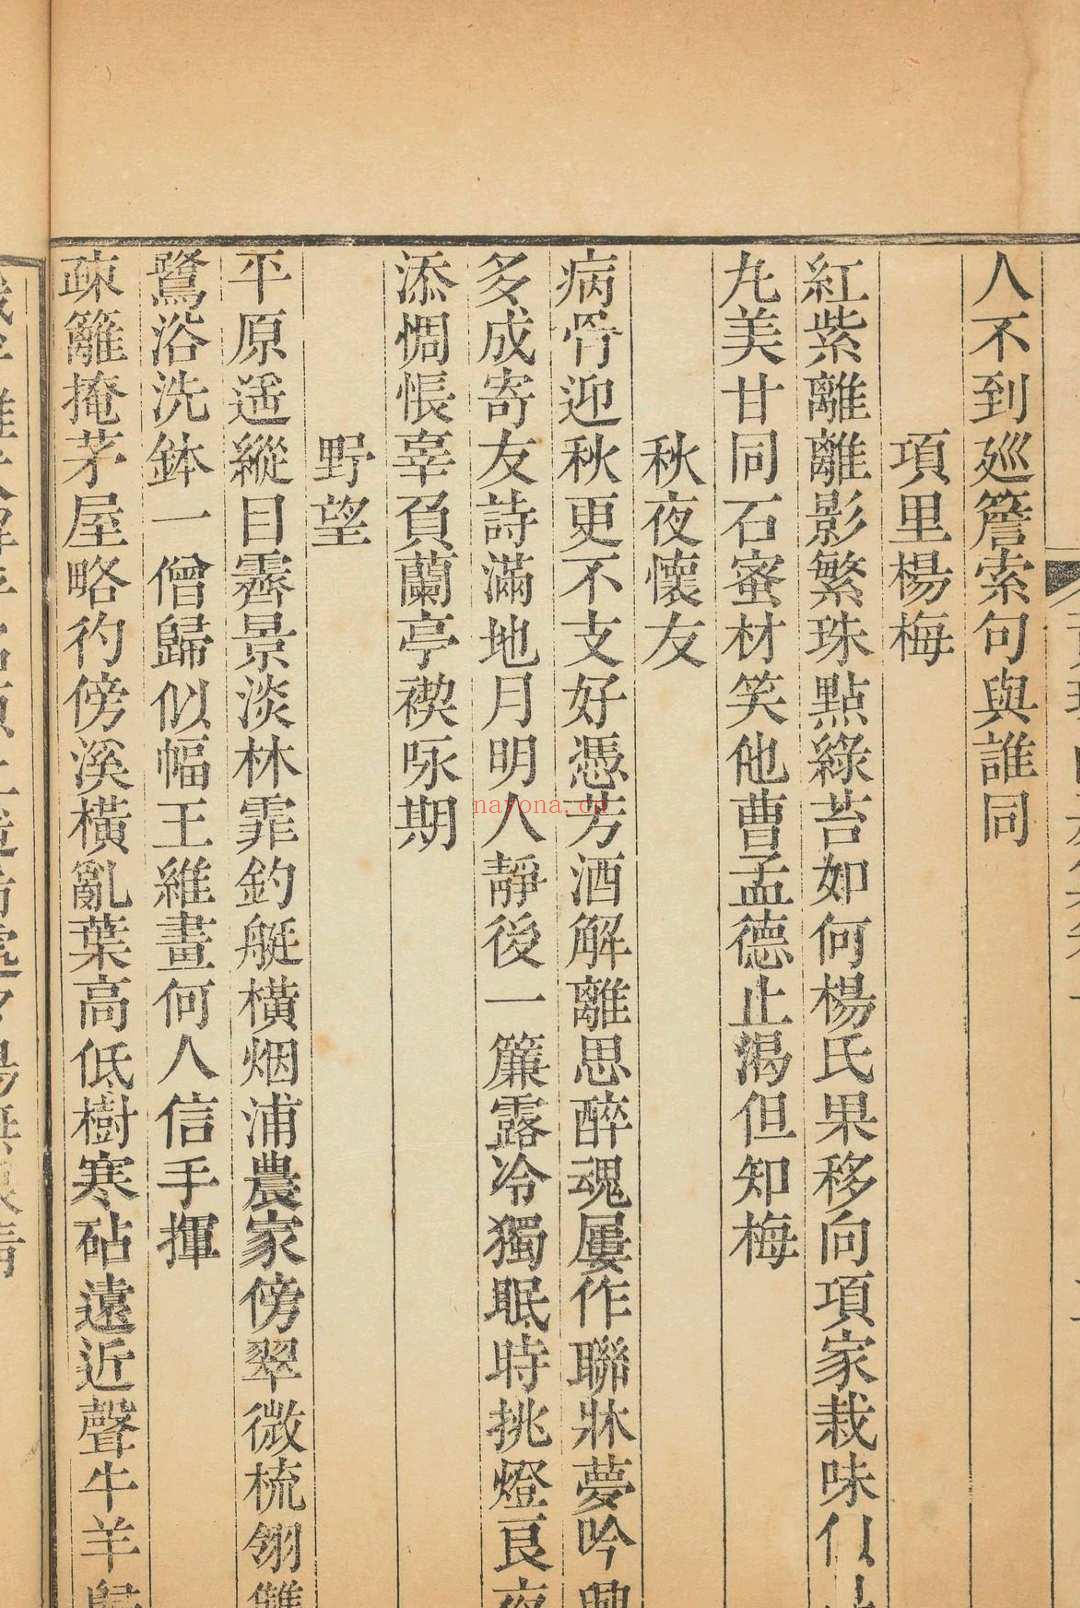 人不到廵簷索句與誰同
項里楊梅
紅紫離離影繁珠點綠苔如何楊氏果移向項家栽味似
九美甘同石蜜材笑他曹孟德止渴但知梅
秋夜懷友
病骨迎秋更不支好憑芳酒解離思醉魂屢作聯牀夢吟興
多成寄友詩滿地月明人靜後一簾露冷獨眠時挑燈良夜
添惆悵辜負蘭亭禊咏期
野望
平原遥縱目霽景淡林霏釣艇橫烟浦農家傍翠微梳翎雙
鷺浴洗鉢一僧歸似幅王維畫何人信手揮
疎籬掩茅屋略彴傍溪橫亂葉高低樹寒砧遠近聲牛羊歸
nayona.cn